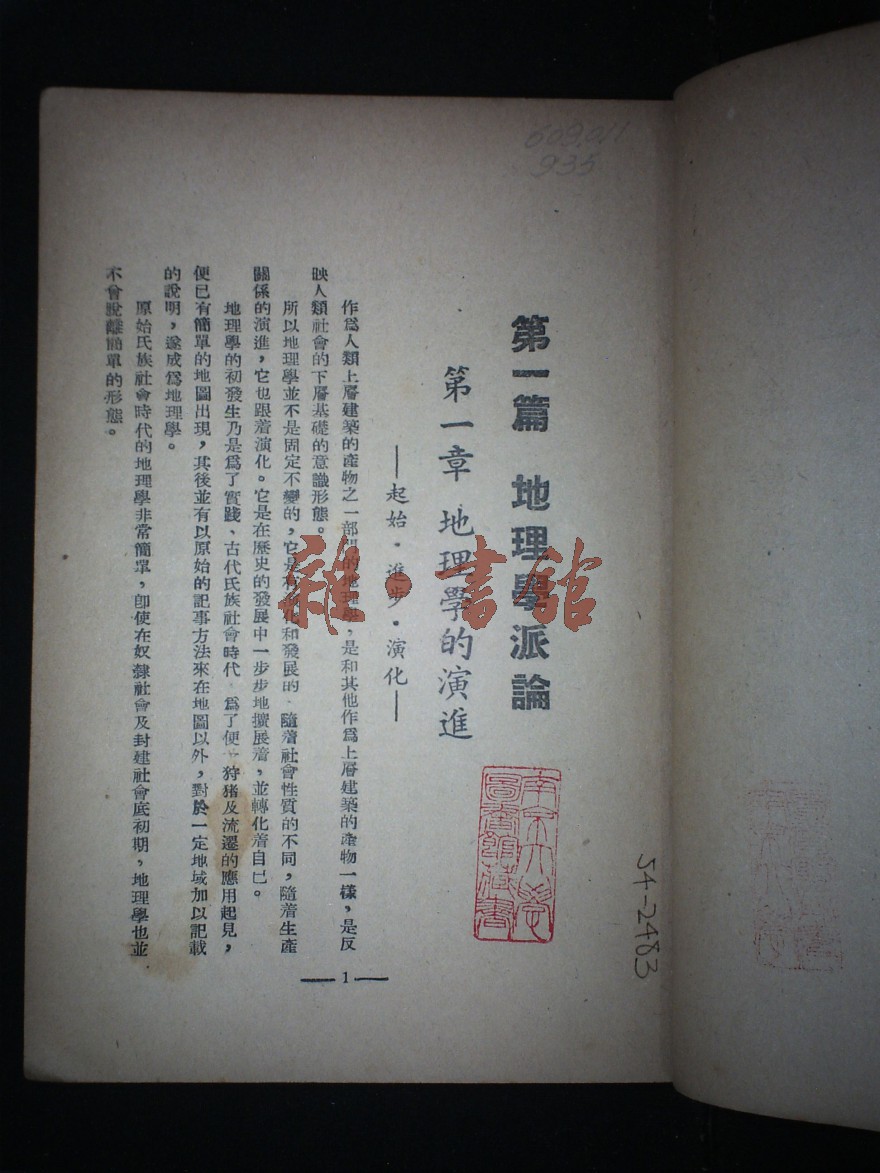 609.011
935
第一篇 地理學派論
第一章 地理學的演進
——起始·進步·演化——
作爲人類上層建築的產物之一部門的地理學，是和其他作爲上層建築的產物一樣，是反
映人類社會的下層基礎的意識形態。
所以地理學並不是固定不變的，它是 化和發展的 隨着社會性質的不同，隨着生產
關係的演進，它也跟着演化。它是在歷史的發展中一步步地擴展着，並轉化着自己。
地理學的初發生乃是爲了實踐、古代氏族社會時代 爲了便 狩猪及流遷的應用起見，
便已有簡單的地圖出現，其後並有以原始的記事方法來在地圖以外，對於一定地域加以記載
的說明，遂成爲地理學。
原始氏族社會時代的地理學非常簡單，卽使在奴隸社會及封建社會底初期，地理學也並
不會說離簡單的形態。
—1—
南京大學
圖書館藏書
54-2483
雜·書館